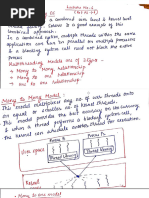 Lecture No. 6
is a combined user level & kernel level
Solaris is a good example of this
combined approach.
In a combined system, multiple threads within the same
application can run in parallel on multiple processors
& a blocking system call need not block the entire
process.
Multithreading Models are of 3 types -
→ Many to Many relationship
→ Many to one relationship
→ One to one relationship
Many to Many Model :-
This model multiplexes any no. of user threads onto
an equal or smaller no. of kernel threads.
This model provides the best accuracy on concurrency
& when a thread performs a blocking system call,
the kernel can schedule another thread for execution.
Process 1
Thread Library
Thread Library
Kernel
→ Many to one model